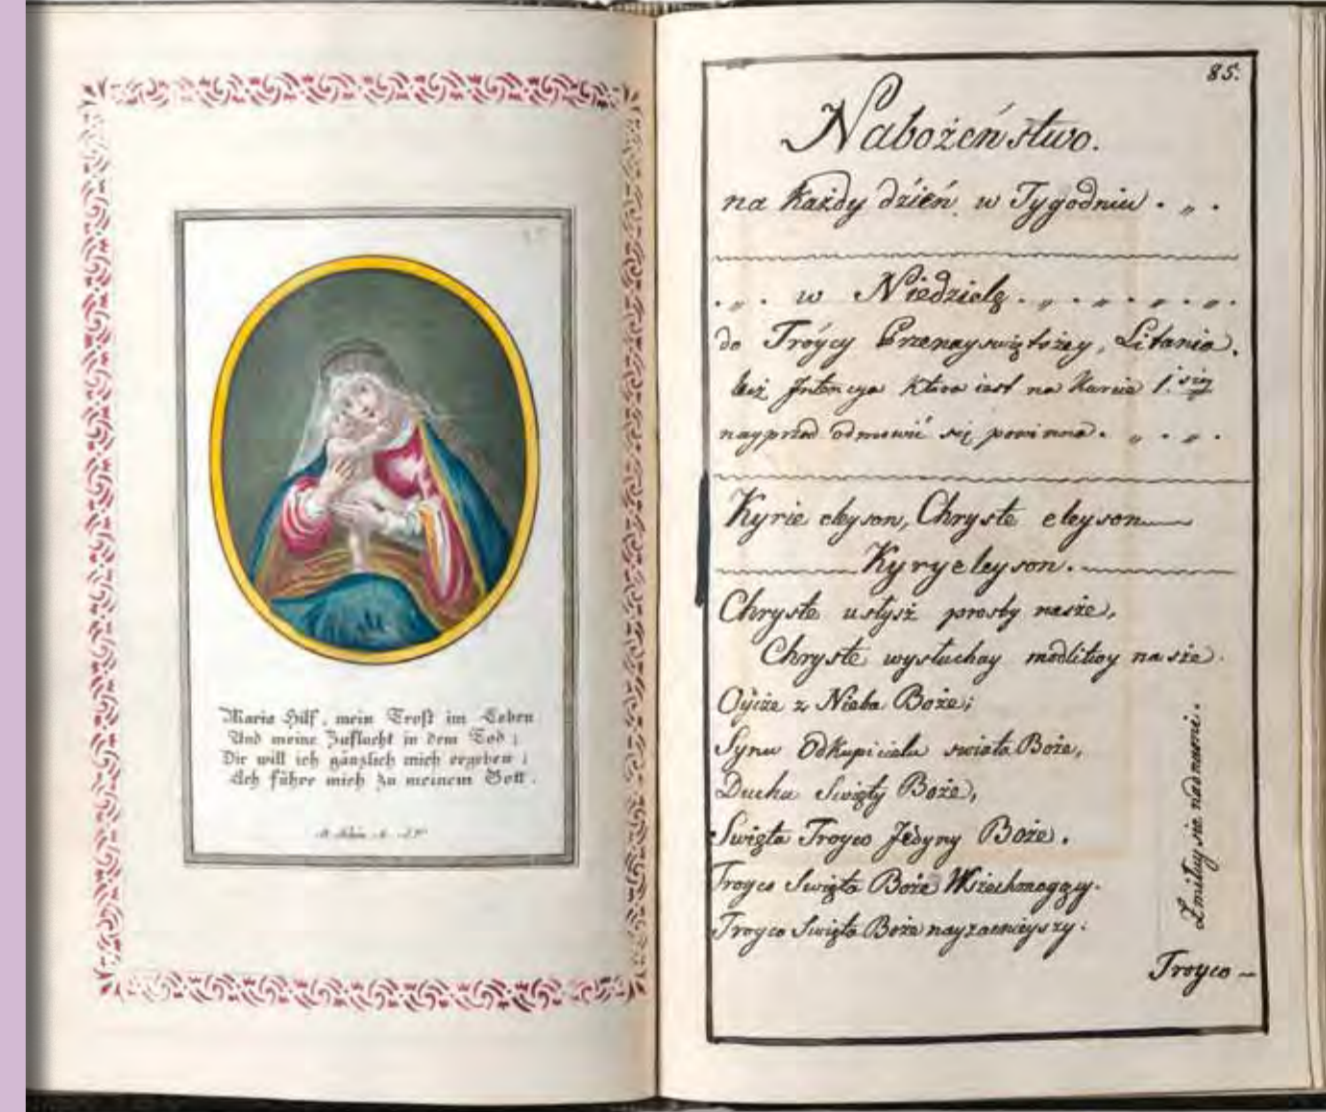 Maria Hilf, mein Trost im Leben
Und meine Zuflucht in dem Tod;
Dir will ich gänzlich mich ergeben;
Ach führe mich zu meinem Gott.
85.
Nabożeństwo.
na Każdy dźień w Tygodniu . „ .
. „ . w Niedzielę . „ . „ . „ . „ .
do Tróycy Przenayswiętożey, Litania.
też Intencya Ktora iest na Karcie 1.
nayprzod odmowić się powinna. „ . „ .
Kyrie eleyson, Chryste eleyson
Kyryeleyson.
Chryste usłysż prosby nasże,
Chryste wysłuchay modlitwy nasże.
Oyćże z Nieba Boże;
Synu Odkupicielu swiata Boże,
Duchu Swięty Boże,
Swięta Troyco Jedyny Boże.
Troyco Swięta Boże Wsżechmogący.
Troyco Swięta Boże nayzacnieyszy:
Zmiłuy sie nad nami.
Troyco –